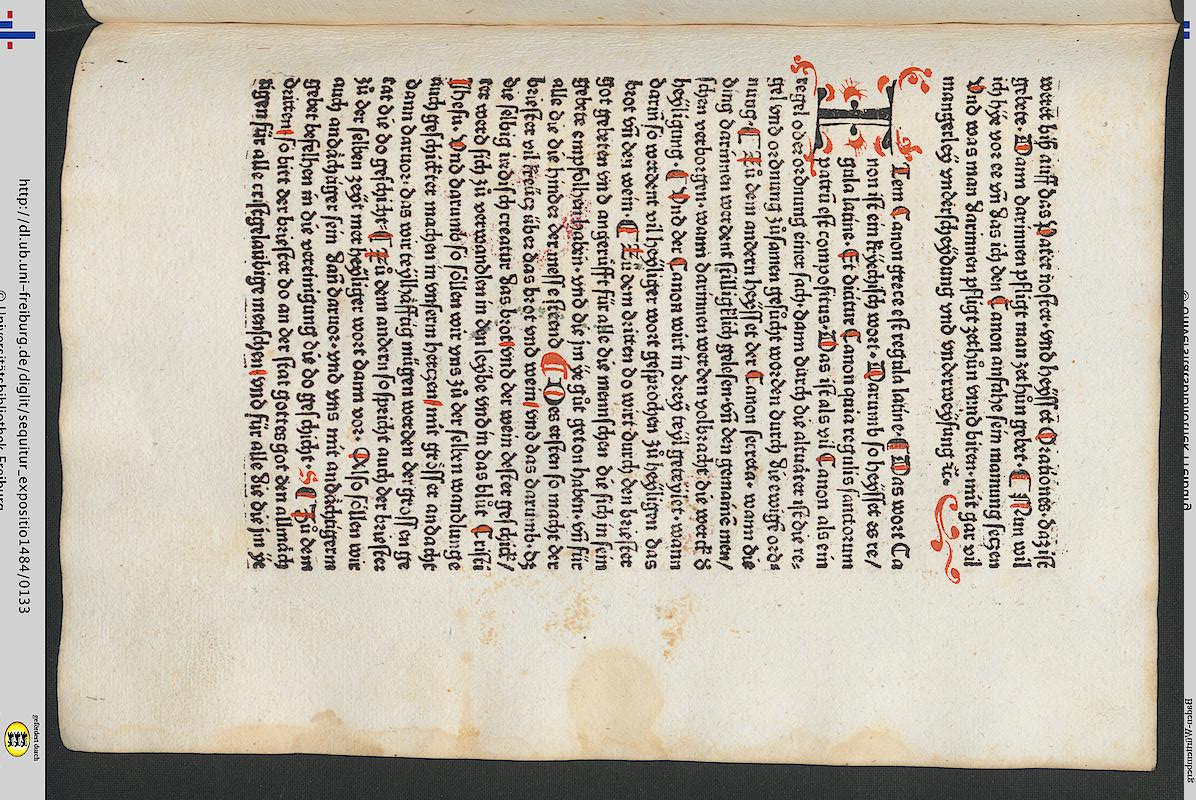 wert biß auff das Pater noster· vnd heÿsset Orationds· daz ist
gebete· Wann darinnen pfligt man ze thůn gebet· Nun wil
ich hÿe vor ee vñ das ich den Canon anfahe sein mainung setzen
Vnd was man darinnen pfligt ze thůn vnnd biten· mit gar vil
mangerleÿ vnderscheÿdung vnd vnderweÿsung ⁊c·
ITem Canon grece est regula latine· Das wort Ca
non ist ein kryechisch wort· Darumb so heÿsset es re/
gula latine· Et dicitur Canon quia regulis sanctorum
patrũ est compositus· Das ist als vil Canon als ein
regel oder ordnung einer sach· dann durch die altuåter ist die re-
gel vnd ordnung zůsamen gesůcht worden durch die ewige ord-
nung· Zů dem andern heÿsset der Canon secreta· wann die
ding darinnen werdent stilligklich gelesen· vñ den gemaine men/
schen verborgen· wann darinnen werden volbracht die werck d
heÿligung· Vnd der Canon wirt in dreÿ teÿl geteÿlet· wann
darin so werdent vil heÿliger wort gesprochen zů heÿligen das
brot vñ den wein Zu dem dritten do wirt durch den briester
got gebeten vnd angerůfft für alle die mennschen die sich in sein
gebete empfolhen haben· vnd die jm ÿe gůt geton haben· vñ für
alle die die hinder der messe steend Des ersten so macht der
briester vil kreücz über das brot vnd wein/ vnd das darumb dz
die selbig irdisch creatur das brot vnd der wein dester geschick/
ter werd sich zů verwandlen in den leybe vnd in das blůt Cristi
Jhesu· Vnd darumb so söllen wir vns zů der selben wandlunge
auch geschickter machen in vnserm herczen/ mit grösser andacht
dann daruor· das wir teÿlhäfftig mügen werden der grossen ge
tat die do geschicht· Zů dem andern so spricht auch der briester
zů der selben zeÿt mer heÿliger wort dann vor· Also söllen wir
auch andåchtiger sein dañ daruor· vnd vns mit andåchtigerm
gebet befelhen in die vereinigung die do geschicht· Zů dem
dritten/ so bitt der briester do an der stat gottes got den allmåch
tigen für alle cristgelaubige menschen/ vnd für alle die die jm ÿe
http://dl.ub.uni-freiburg.de/diglit/sequitur_expositio1484/0133
© Universitätsbibliothek Freiburg
gefördert durch